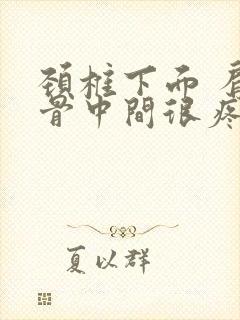 颈椎下面 肩
骨中間很疼
夏以群